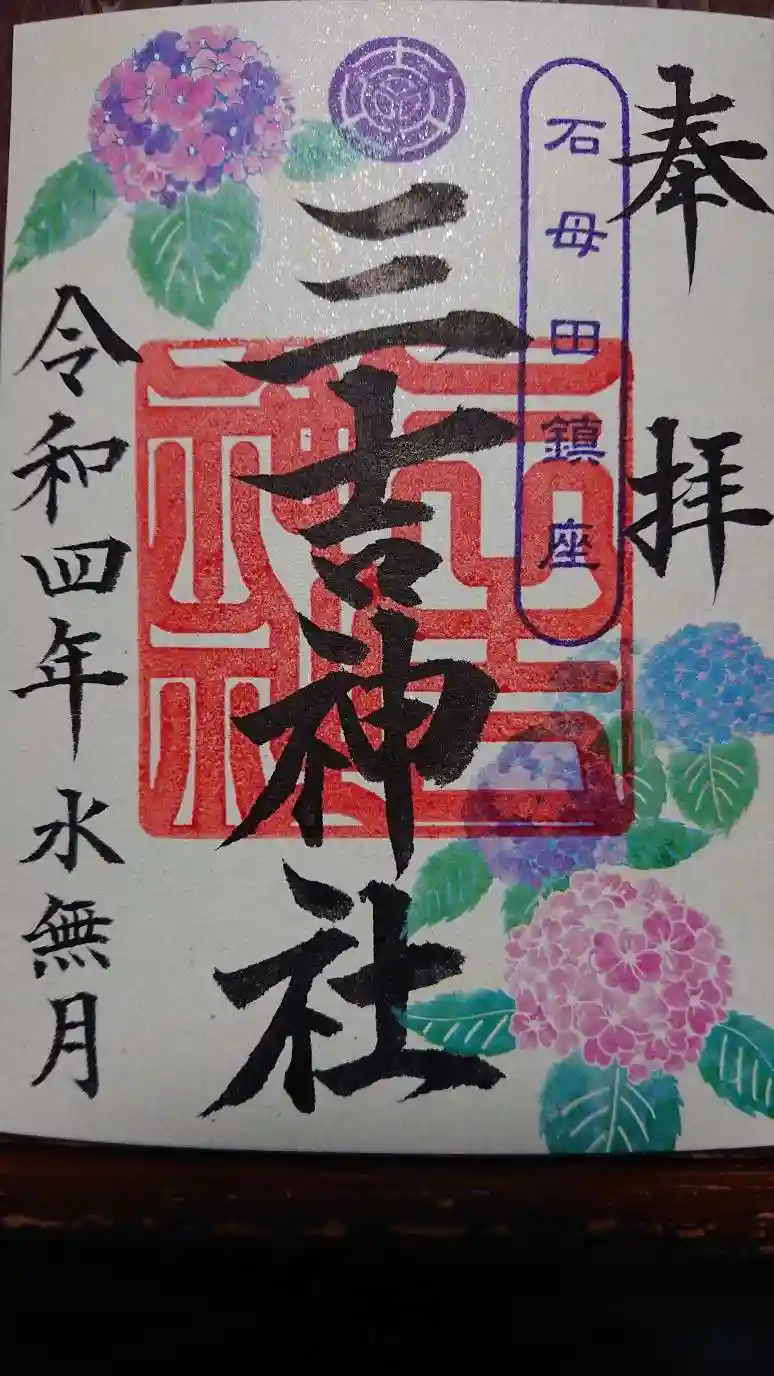 奉拝
石母田鎮座
三吉神社
三吉神社
令和四年水無月